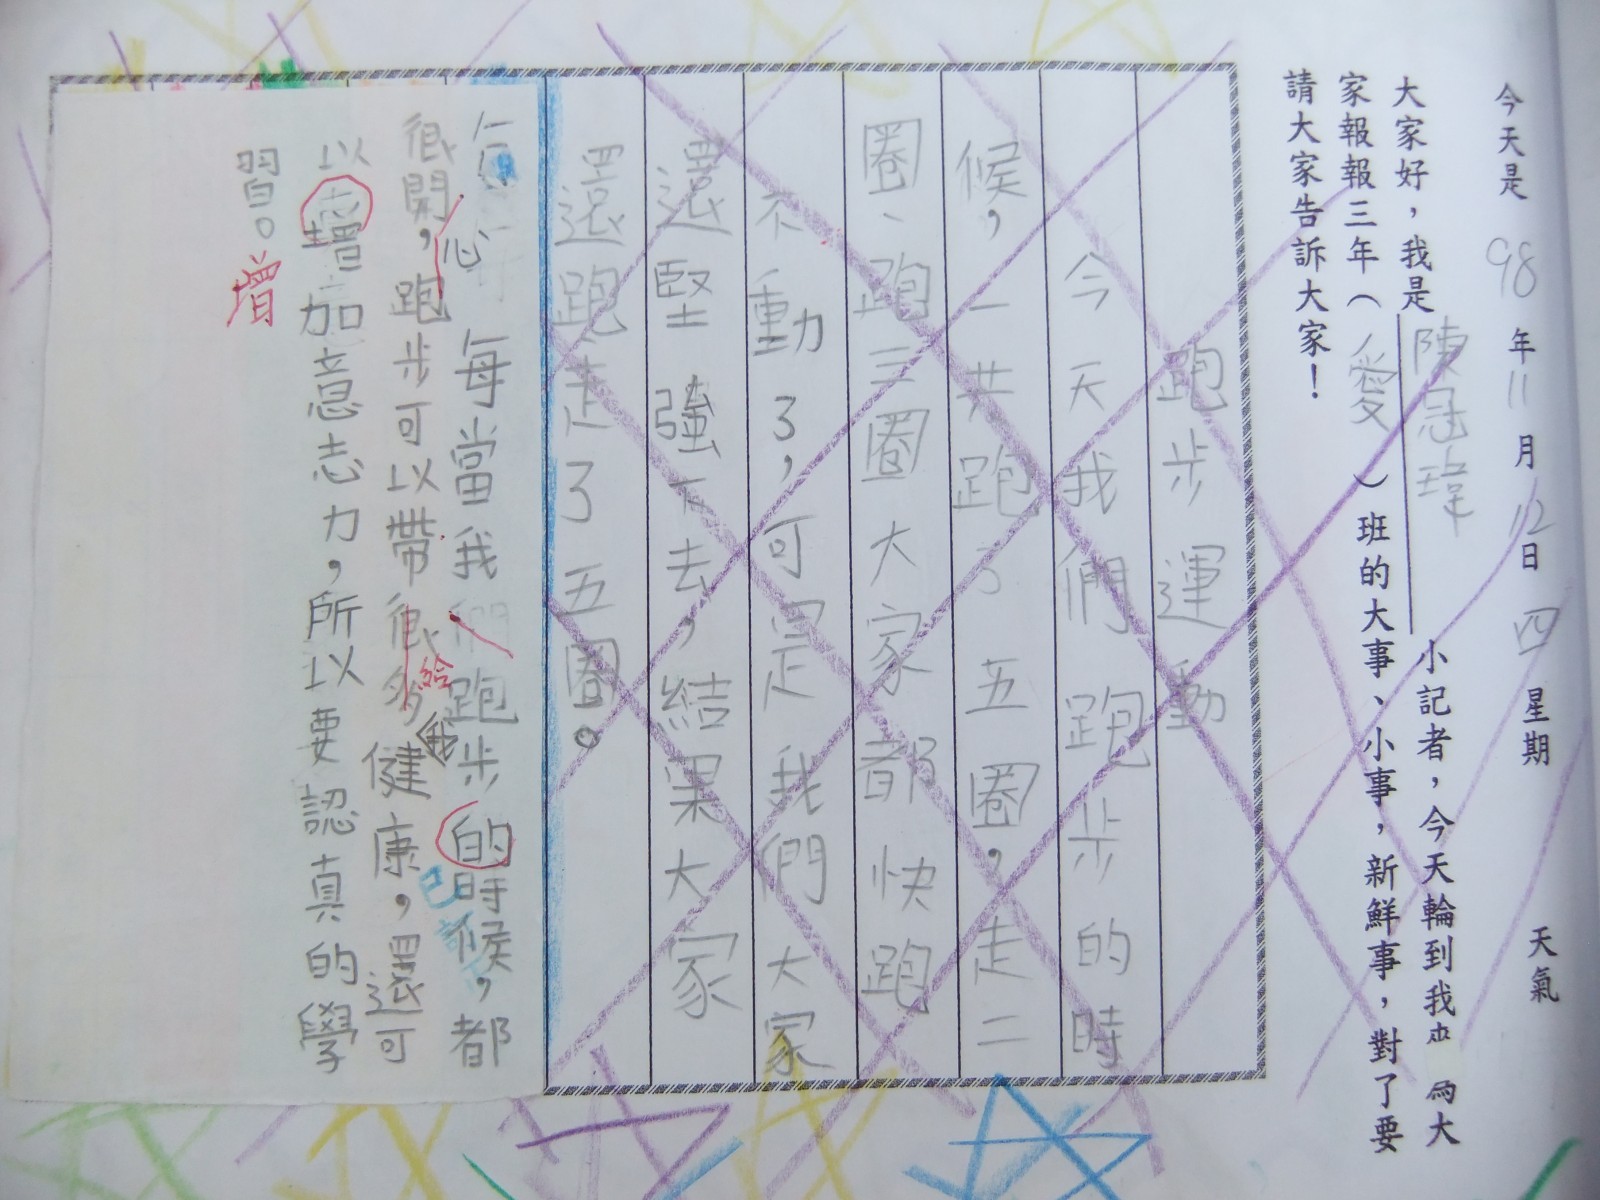 今天是 98 年 11 月 12 日 四 星期 天氣
大家好，我是 陳冠瑋 小記者，今天輪到我來為大
家報報三年（愛）班的大事、小事，新鮮事，對了要
請大家告訴大家！
跑步運動
今天我們跑步的時
候，一共跑了五圈，走二
圈、跑三圈大家都快跑
不動了，可是我們大家
還堅強下去，結果大家
還跑走了五圈。
每當我們跑步的時候，都
很開心，跑步可以帶給我很多健康，還可
以增加意志力，所以要認真的學
習。
增